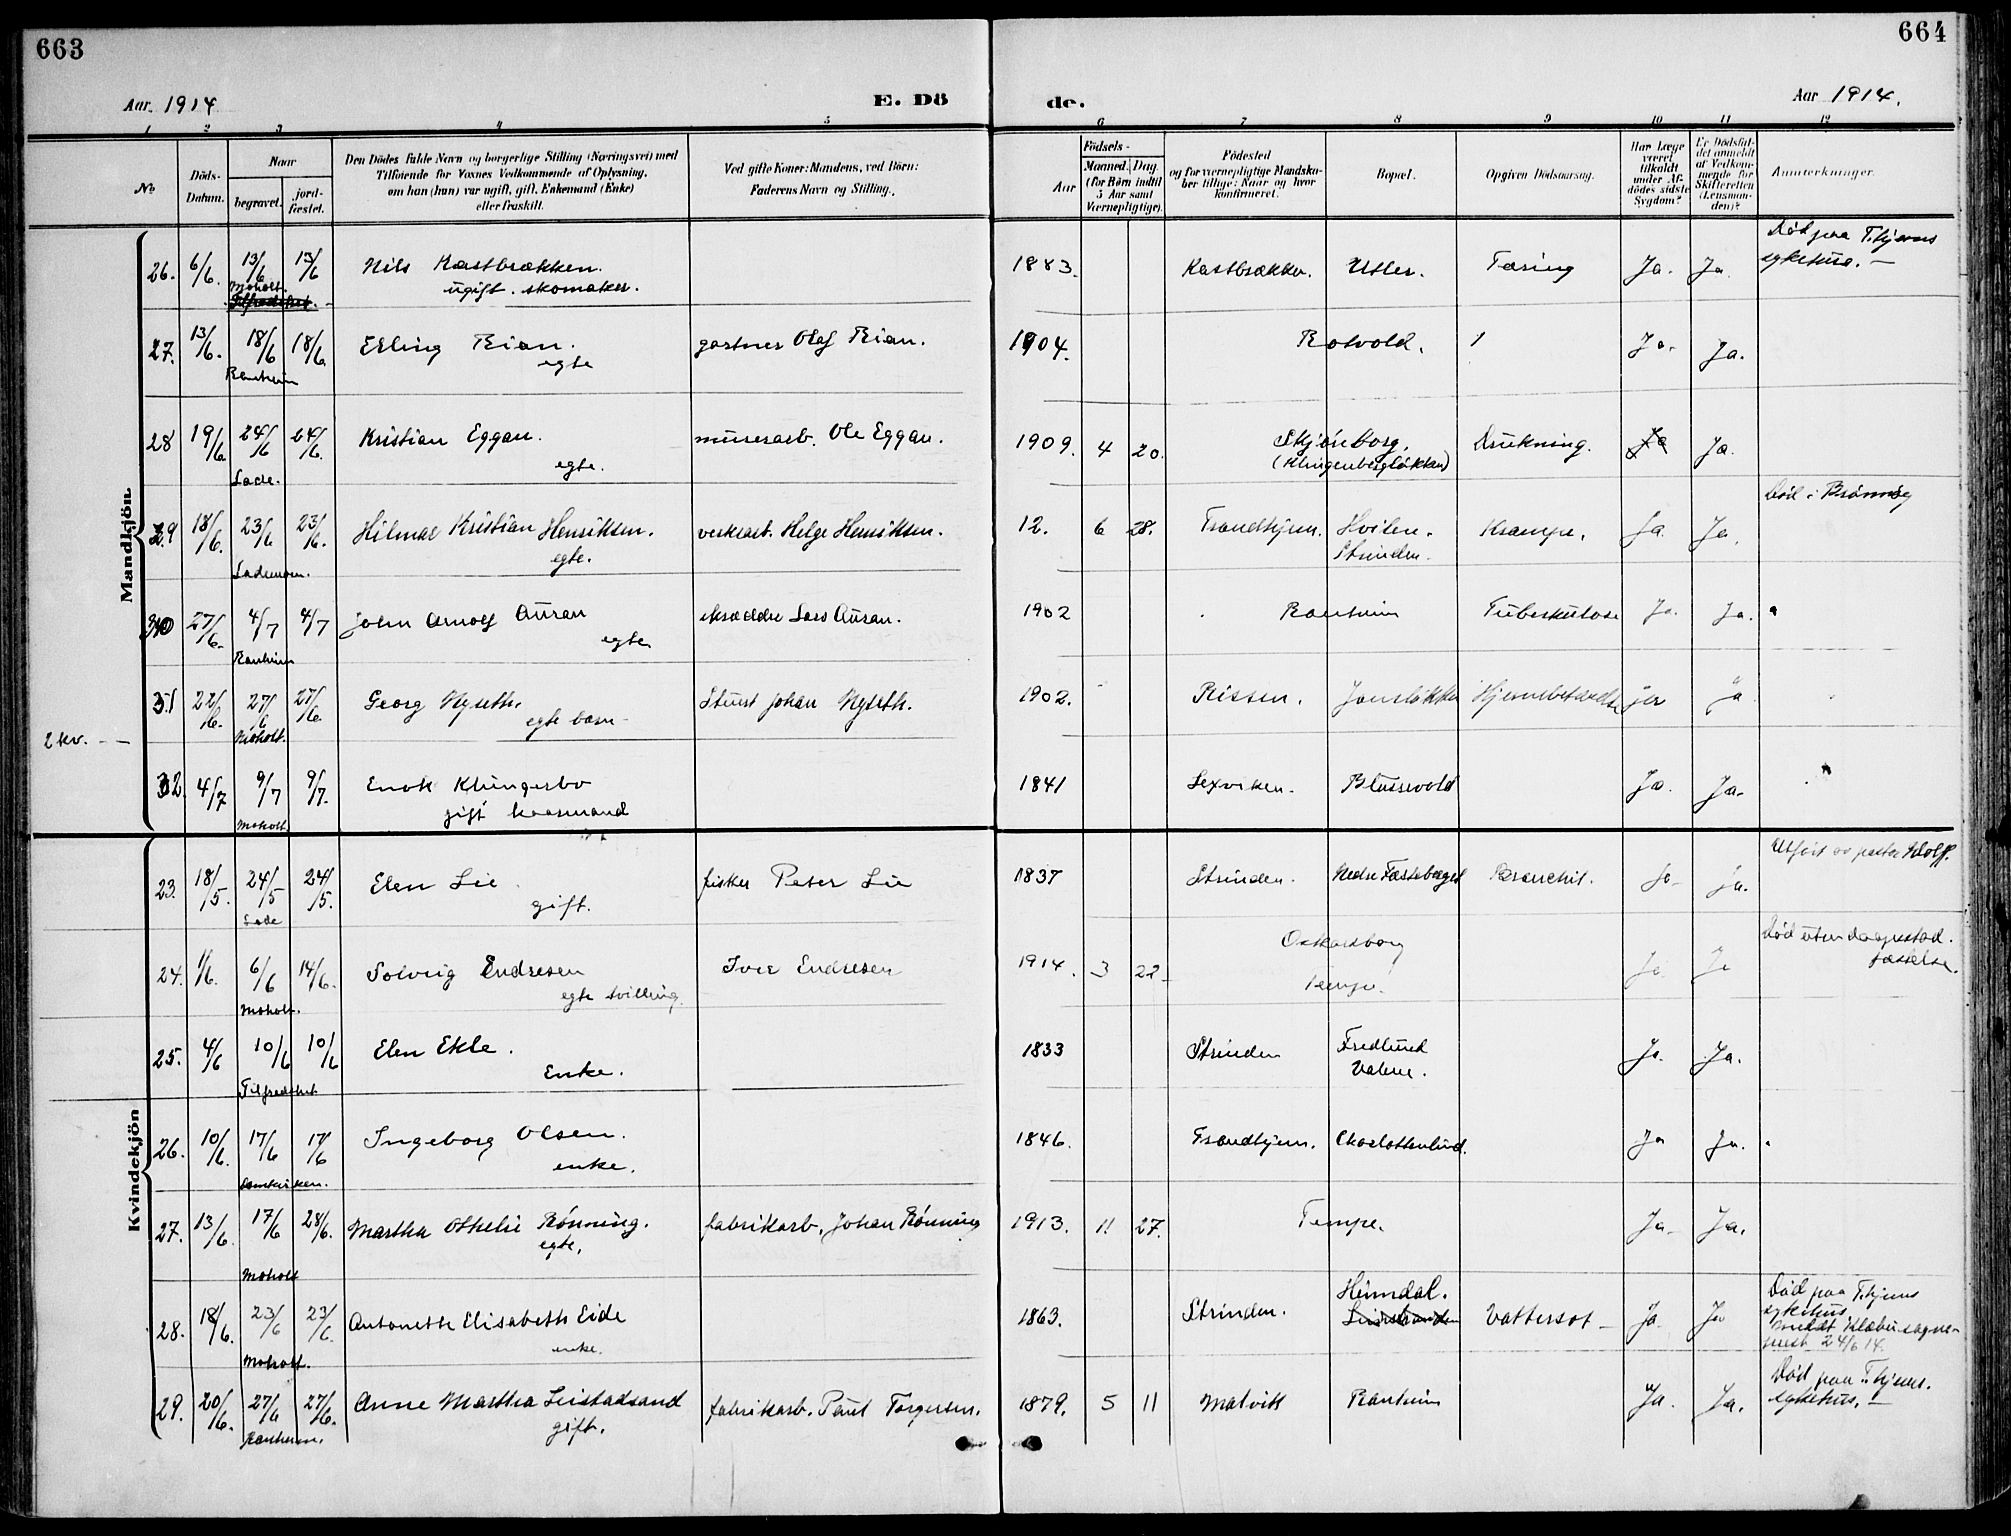 663
664
Aar 1914
E. Dö
de.
Aar 1914.
1 2 3 4 5 6 7 8 9 10 11 12
No
Döds-Datum.
Naar
begravet.
jord-fæstet.
Den Dödes fulde Navn og borgerlige Stilling (Næringsvei) med
Tilföiende for Voxnes Vedkommende af Oplysning,
om han (hun) var ugift, gift, Enkemand (Enke)
eller fraskilt.
Ved gifte Koner: Mandens, ved Börn:
Faderens Navn og Stilling.
Födsels-
Aar
Maaned. Dag
(for Börn indtil
5 Aar samt
Værnepligtige).
Födested
og for værnepligtige Mandska-
ber tillige: Naar og hvor
konfirmeret.
Bopæl.
Opgiven Dödsaarsag.
Har Læge
været
tilkaldt
under Af-
dödes sidste
Sygdom?
Er Dödsfal-
det anmeldt
af Vedkom-
mende for
Skifteretten
(Lensman-
den)?
Anmerkninger.
Mandkjön.
26. 6/6. 13/6 13/6 Nils Kastbrækken. 1883. Kastbrækken. Utler. Tæring Ja. Ja. Död paa T.hjems
Moholt. ugift. skomaker. sykehus. —
Tilfredshet.
27. 13/6. 18/6 18/6 Erling Rian. gartner Olaf Rian. 1904. Rotvold. Ja. Ja.
Ranheim egte
28 19/6 24/6 24/6. Kristian Eggan. murerarb. Ole Eggan. 1909. 4 20. Skjöneborg, Drukning. Ja Ja.
Lade. egte. (Klingenbergløkken)
29 18/6. 23/6 23/6. Hilmar Kristian Henriksen. verkarb. Helge Henriksen. 12. 6 28. Trondhjem. Hvilen. Krampe. Ja. Ja. Död i
Lademoen. egte. Strinden.
30 27/6. 4/7 4/7 John Arnolf Auran skrædder Lars Auran. 1902 Ranheim Tuberkulose Ja. Ja.
Ranheim egte
31 22/6. 27/6 27/6. Georg Nyseth. Stuert Johan Nyseth. 1902. Rissen. Jonsløkken Hjernebetændelse ja ja
2 kv. — Moholt. egte barn
32. 4/7 9/7 9/7. Enok Klungerbo 1841 Lexviken. Blussevold Ja. Ja.
Moholt gift kaarmand
Kvindekjön
23. 18/5. 24/5 24/5. Elen Lie fisker Peter Lie 1837 Strinden. Nedre Fæstebaget Bronchit. Ja ja. Utfört av pastor
Lade gift.
24. 1/6. 6/6 14/6. Solveig Endresen Iver Endresen 1914. 3 22 Oskarsborg Ja Ja Död uten
Moholt. egte tvilling. Tempe.
25. 4/6 10/6 10/6 Elen Ekle. 1833 Strinden Fredlund Ja. Ja.
Tilfredshet Enke.
26. 10/6. 17/6 17/6 Ingeborg Olsen. 1846. Trondhjem. Charlottenlund. Ja Ja.
Domkirken. enke.
27. 13/6. 17/6 28/6. Martha Othelie Rönning. fabrikarb. Johan Rönning 1913. 11 27. Tempe. Ja Ja.
Moholt egte.
28. 18/6. 23/6 23/6 Antonette Elisabeth Eide 1863. Strinden. Heimdal. Vattersot Ja. Ja Död paa T.hjems
Moholt. enke. Leinstranden sykehus
meldt Klæbu sogne-
prest 24/6 14.
29. 20/6. 27/6 27/6. Anne Martha Leistadsand fabrikarb. Paul Torgersen. 1879. 5 11 Malvik Ranheim Ja. Ja. Död paa T.hjems.
Ranheim. gift. sykehus. —